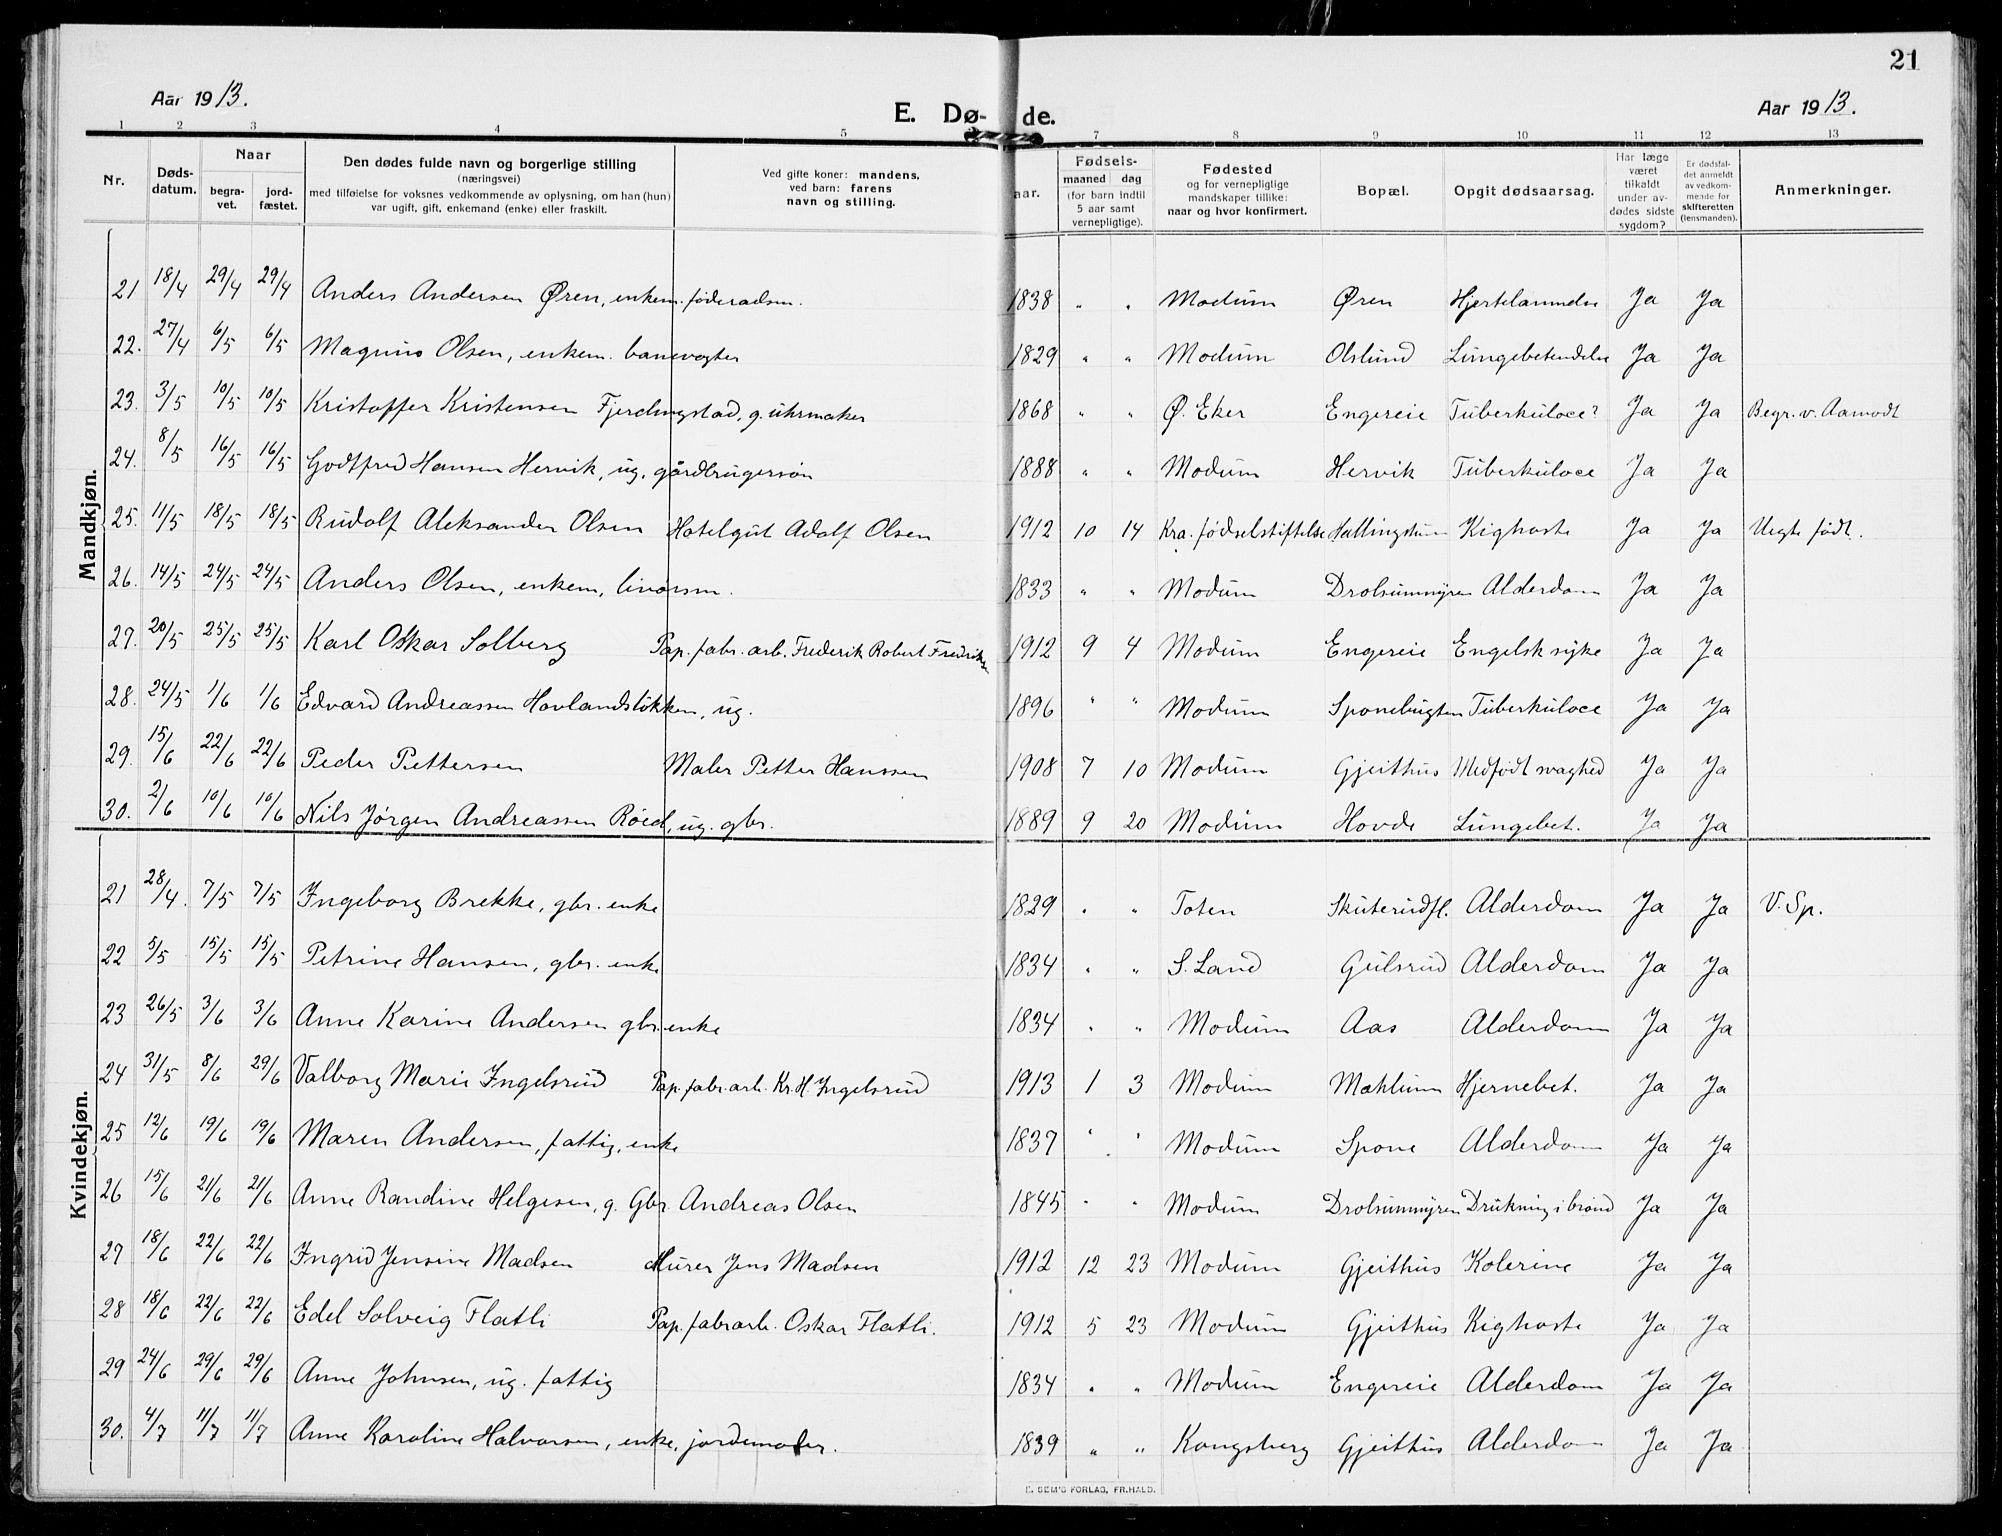 21
Aar 1913.
E. Døde.
Aar 1913.
1 2 3 4 5 7 8 9 10 11 12 13
Nr.
Dødsdatum.
Naar
begravet.
jordfæstet.
Den dødes fulde navn og borgerlige stilling
(næringsvei)
med tilføielse for voksnes vedkommende av oplysning, om han (hun)
var ugift, gift, enkemand (enke) eller fraskilt.
Ved gifte koner: mandens,
ved barn: farens
navn og stilling.
aar.
Fødsels-
maaned dag
(for barn indtil
5 aar samt
vernepligtige).
Fødested
og for vernepligtige
mandskaper tillike:
naar og hvor konfirmert.
Bopæl.
Opgit dødsaarsag.
Har læge
været
tilkaldt
under avdødes sidste
sygdom?
Er dødsfaldet anmeldt
av vedkommende før
skifteretten
(lensmanden).
Anmerkninger.
Mandkjøn.
21 18/4 29/4 29/4 Anders Andersen Øren, enkem. føderadsm. 1838 " " Modum Øren Hjertelammelse Ja Ja
22. 27/4 6/5 6/5 Magnus Olsen, enkem. banevogter 1829 " " Modum Olslund Lungebetendelse Ja Ja
23. 3/5 10/5 10/5 Kristoffer Kristensen Fjerdingstad, g. uhrmaker 1868 " " Ø. Eker Engereie Tuberkuloce? Ja Ja Begr. v. Aamodt
24. 8/5 16/5 16/5 Godtfred Hansen Hervik, ug. gårdbrugersøn 1888 " " Modum Hervik Tuberkuloce Ja Ja
25. 11/5 18/5 18/5 Rudolf Aleksander Olsen Hotelgut Adolf Olsen 1912 10 14 Kra. fødselstiftelse Hallingstum Kighoste Ja Ja Uegte født.
26. 14/5 24/5 24/5 Anders Olsen, enkem, livørsm. 1833 " " Modum Drolsummyren Alderdom Ja Ja
27. 20/5 25/5 25/5 Karl Oskar Solberg Pap. fabr. arb. Frederik Robert Fredriks 1912 9 4 Modum Engereie Engelsk syke Ja Ja
28. 24/5 1/6 1/6 Edvard Andreassen Hovlandsløkken, ug. 1896 " " Modum Sponebugten Tuberkuloce Ja Ja
29. 15/6 22/6 22/6 Peder Pettersen Maler Petter Hanssen 1908 7 10 Modum Gjeithus Medfødt svaghed Ja Ja
30. 2/6 10/6 10/6 Nils Jørgen Andreassen Røed, ug. gbr. 1889 9 20 Modum Hovde Lungebet. Ja Ja
Kvindekjøn.
21 28/4. 7/5 7/5 Ingeborg Brekke, gbr. enke 1829 " " Toten Skuterudfl. Alderdom Ja Ja V. Sp.
22 5/5 15/5 15/5 Petrine Hansen, gbr. enke 1834 " " S. Land Gulsrud Alderdom Ja Ja
23 26/5 3/6 3/6 Anne Karine Andersen gbr. enke 1834 " " Modum Aas Alderdom Ja Ja
24 31/5 8/6 29/6 Valborg Marie Ingelsrud Pap. fabr. arb. Kr. H. Ingelsrud 1913 1 3 Modum Mæhlum Hjernebet. Ja Ja
25 12/6 19/6 19/6 Maren Andersen, fattig, enke 1837 " " Modum Spone Alderdom Ja Ja
26 15/6 21/6 21/6 Anne Randine Helgesen, g. Gbr. Andreas Olsen 1845 " " Modum Drolsummyren Drukning i brønd Ja Ja
27 18/6 22/6 22/6 Ingrid Jensine Madsen Murer Jens Madsen 1912 12 23 Modum Gjeithus Kolerine Ja Ja
28 18/6 22/6 22/6 Edel Solveig Flatli Pap. fabr arb. Oskar Flatli. 1912 5 23 Modum Gjeithus Kighoste Ja Ja
29 24/6 29/6 29/6 Anne Johnsen, ug. fattig 1834 " " Modum Engereie Alderdom Ja Ja
30. 4/7 11/7 11/7 Anne Karoline Halvorsen, enke, jordemoder. 1839 " " Kongsberg Gjeithus Alderdom Ja Ja
E. SEM'S FORLAG, FR.HALD.